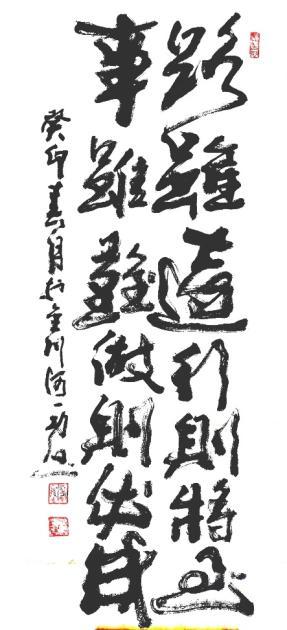 路雖遠行則將至
事雖難做則必成
癸卯春月於金川河一